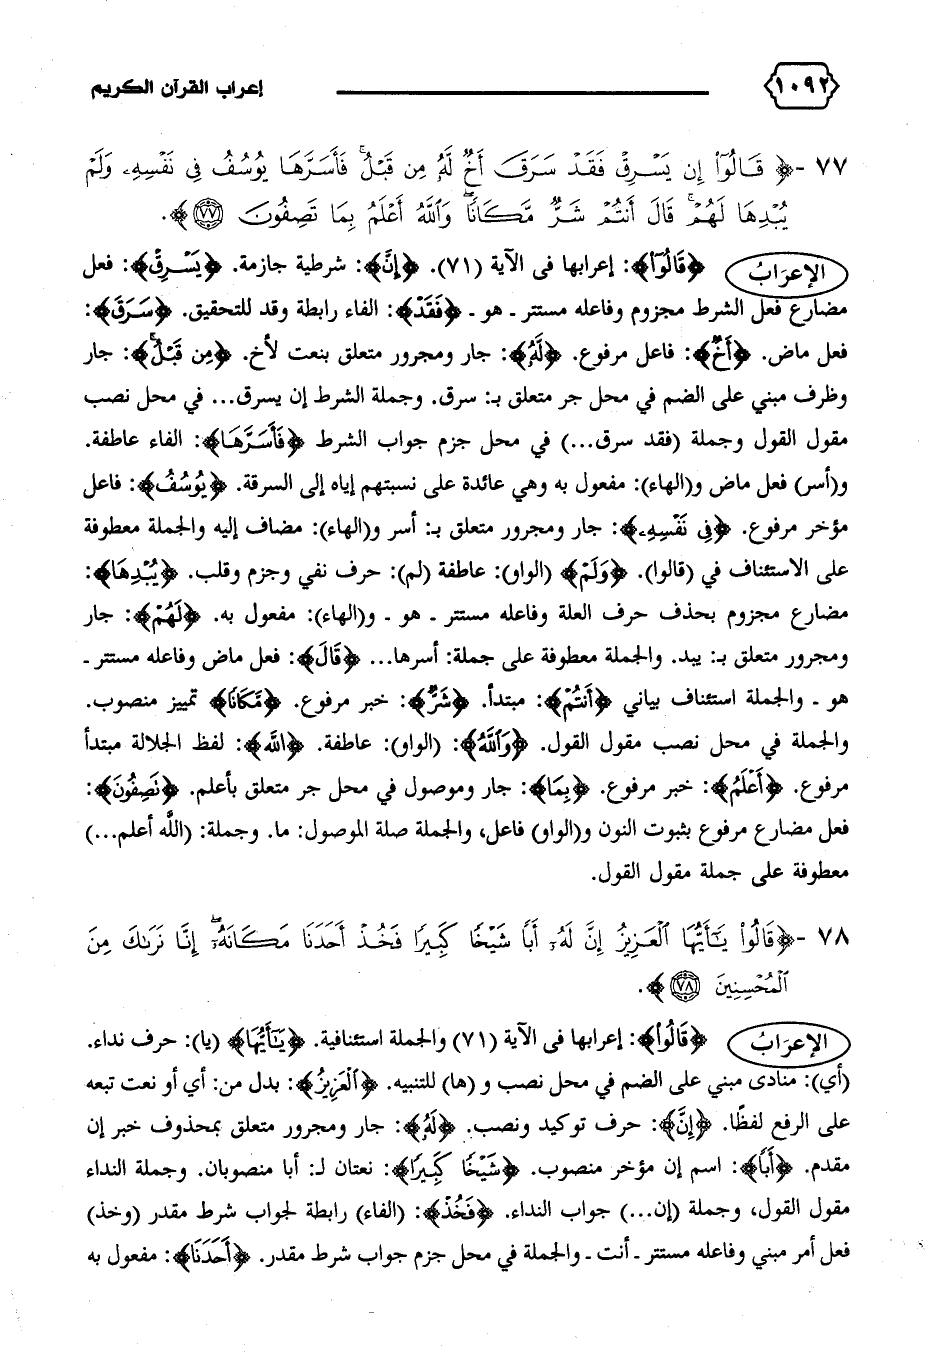 ١٠٩٢ إعراب القرآن الكريم
٧٧ - ﴿ قَالُوٓا۟ إِن يَسْرِقْ فَقَدْ سَرَقَ أَخٌ لَّهُۥ مِن قَبْلُ ۚ فَأَسَرَّهَا يُوسُفُ فِى نَفْسِهِۦ وَلَمْ
يُبْدِهَا لَهُمْ ۚ قَالَ أَنتُمْ شَرٌّ مَّكَانًا ۖ وَٱللَّهُ أَعْلَمُ بِمَا تَصِفُونَ ﴿٧٧﴾ ﴾.
الإعرَابُ ﴿قَالُوٓا۟﴾: إعرابها فى الآية (٧١). ﴿إِنَّ﴾: شرطية جازمة. ﴿يَسْرِقْ﴾: فعل
مضارع فعل الشرط مجزوم وفاعله مستتر ـ هو ـ ﴿فَقَدْ﴾: الفاء رابطة وقد للتحقيق. ﴿سَرَقَ﴾:
فعل ماض. ﴿أَخٌ﴾: فاعل مرفوع. ﴿لَّهُۥ﴾: جار ومجرور متعلق بنعت لأخ. ﴿مِن قَبْلُ ۚ﴾: جار
وظرف مبني على الضم في محل جر متعلق بـ: سرق. وجملة الشرط إن يسرق... في محل نصب
مقول القول وجملة (فقد سرق...) في محل جزم جواب الشرط ﴿فَأَسَرَّهَا﴾: الفاء عاطفة.
و(أسر) فعل ماض و(الهاء): مفعول به وهي عائدة على نسبتهم إياه إلى السرقة. ﴿يُوسُفُ﴾: فاعل
مؤخر مرفوع. ﴿فِى نَفْسِهِۦ﴾: جار ومجرور متعلق بـ: أسر و(الهاء): مضاف إليه والجملة معطوفة
على الاستئناف في (قالوا). ﴿وَلَمْ﴾ (الواو): عاطفة (لم): حرف نفي وجزم وقلب. ﴿يُبْدِهَا﴾:
مضارع مجزوم بحذف حرف العلة وفاعله مستتر ـ هو ـ و(الهاء): مفعول به. ﴿لَهُمْ﴾: جار
ومجرور متعلق بـ: يبد. والجملة معطوفة على جملة: أسرها... ﴿قَالَ﴾: فعل ماض وفاعله مستتر ـ
هو ـ والجملة استئناف بياني ﴿أَنتُمْ﴾: مبتدأ. ﴿شَرٌّ﴾: خبر مرفوع. ﴿مَّكَانًا﴾ تمييز منصوب.
والجملة في محل نصب مقول القول. ﴿وَٱللَّهُ﴾: (الواو): عاطفة. ﴿الله﴾: لفظ الجلالة مبتدأ
مرفوع. ﴿أَعْلَمُ﴾: خبر مرفوع. ﴿بِمَا﴾: جار وموصول في محل جر متعلق بأعلم. ﴿تَصِفُونَ﴾:
فعل مضارع مرفوع بثبوت النون و(الواو) فاعل، والجملة صلة الموصول: ما. وجملة: (اللَّه أعلم...)
معطوفة على جملة مقول القول.
٧٨ - ﴿قَالُوا۟ يَٰٓأَيُّهَا ٱلْعَزِيزُ إِنَّ لَهُۥٓ أَبًا شَيْخًا كَبِيرًا فَخُذْ أَحَدَنَا مَكَانَهُۥٓ ۖ إِنَّا نَرَىٰكَ مِنَ
ٱلْمُحْسِنِينَ ﴿٧٨﴾ ﴾.
الإعرَابُ ﴿قَالُوا۟﴾: إعرابها فى الآية (٧١) والجملة استئنافية. ﴿يَٰٓأَيُّهَا﴾ (يا): حرف نداء.
(أي): منادى مبني على الضم في محل نصب و (ها) للتنبيه. ﴿ٱلْعَزِيزُ﴾: بدل من: أي أو نعت تبعه
على الرفع لفظًا. ﴿إِنَّ﴾: حرف توكيد ونصب. ﴿لَهُۥ﴾: جار ومجرور متعلق بمحذوف خبر إن
مقدم. ﴿أَبًا﴾: اسم إن مؤخر منصوب. ﴿شَيْخًا كَبِيرًا﴾: نعتان لـ: أبا منصوبان. وجملة النداء
مقول القول، وجملة (إن...) جواب النداء. ﴿فَخُذْ﴾: (الفاء) رابطة لجواب شرط مقدر (وخذ)
فعل أمر مبني وفاعله مستتر ـ أنت ـ والجملة في محل جزم جواب شرط مقدر. ﴿أَحَدَنَا﴾: مفعول به